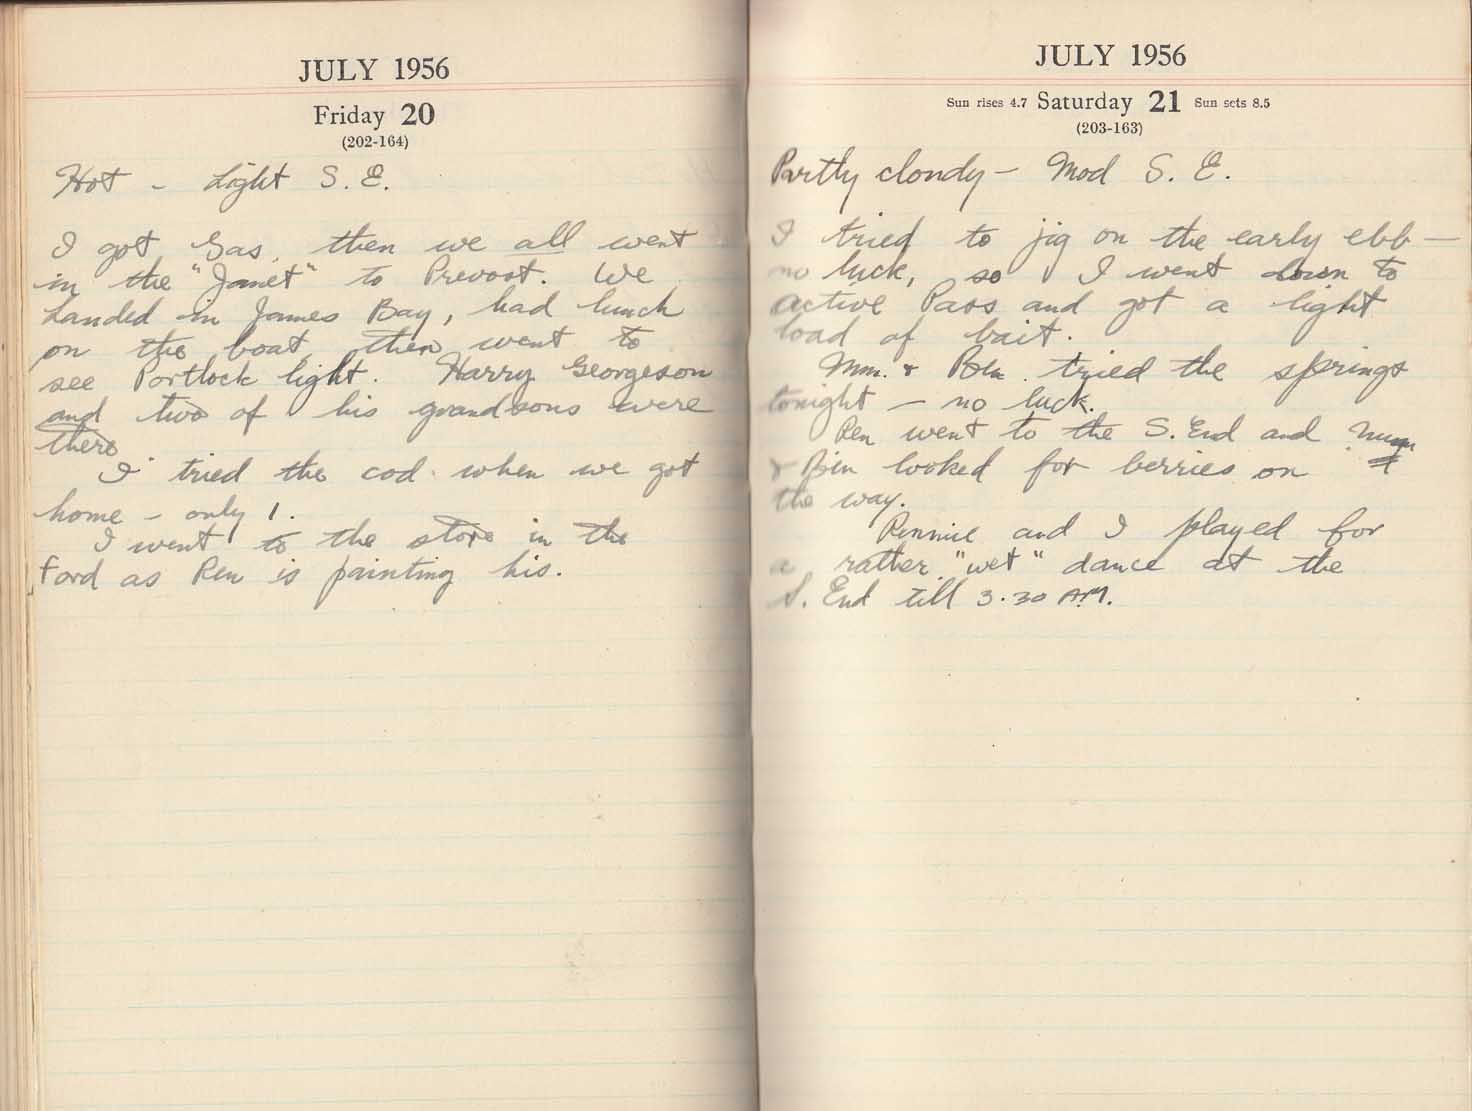 JULY 1956
Friday 20
(202-164)
Hot - Light S. E.
I got Gas, then we all went
in the "Janet" to Prevost. We
landed in James Bay, had lunch
on the boat, then went to
see Portlock light. Harry Georgeson
and two of his grandsons were
there.
I tried the cod when we got
home - only 1.
I went to the store in the
Ford as Pen is painting his.
JULY 1956
Sun rises 4.7 Saturday 21 Sun sets 8.5
(203-163)
Partly cloudy - Mod S. E.
I tried to jig on the early ebb -
no luck, so I went down to
Active Pass and got a light
load of bait.
Mm. & Ben tried the springs
tonight - no luck.
Pen went to the S. End and
& Ben looked for berries on
the way.
Rennie and I played for
a rather "wet" dance at the
S. End till 3.30 AM.